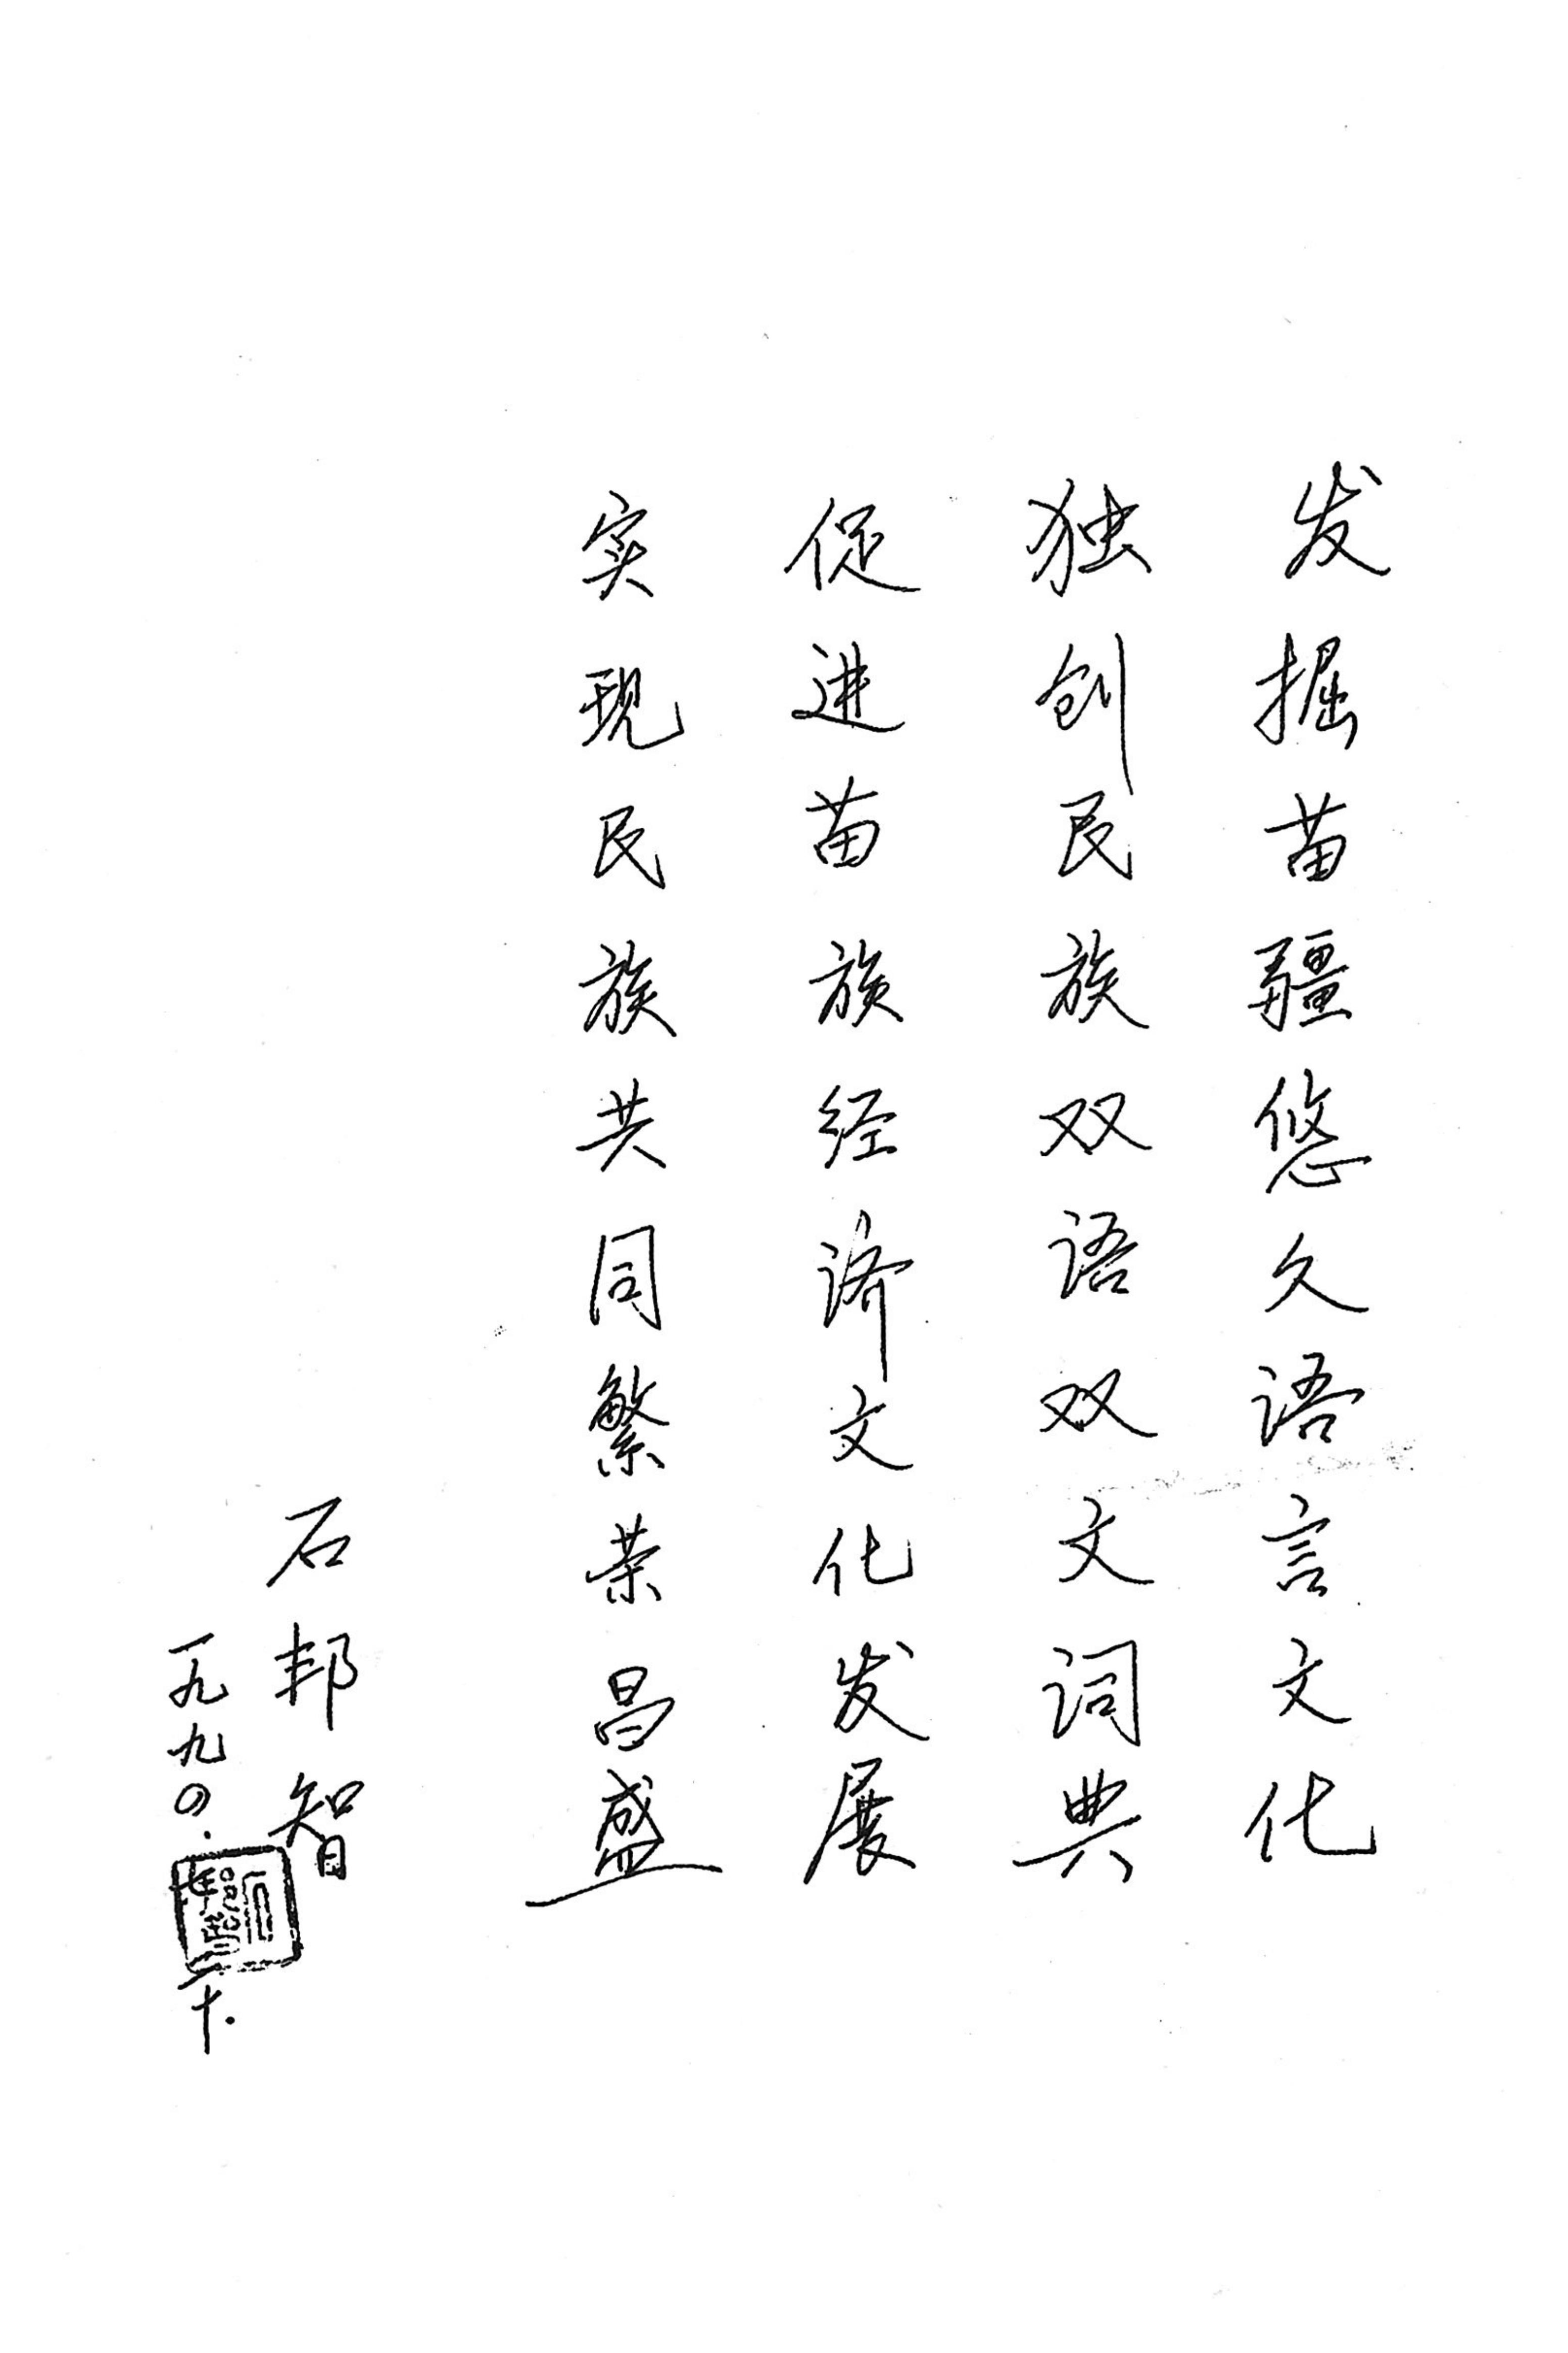 发掘苗疆悠久语言文化
独创民族双语双文词典
促进苗族经济文化发展
实现民族共同繁荣昌盛
石邦智
一九九〇.
十.